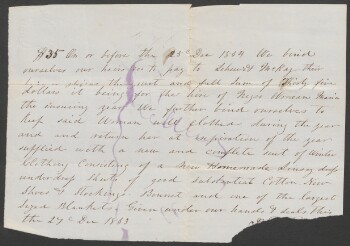 $35 On or before the 25th Dec 1864 We bind
ourselves our heirs &c to pay to McKay their
the just and full Sum of thirty five
dollars it being for the hire of Negro Woman
the ensuing year We further bind ourselves to
keep said Woman well clothed during the year
and and return her at expiration of the year
supplied with a new and complete suit of winter
Clothing Consisting of a New Homemade Linsey dress
underdress Shirts of good substantial Cotton New
Shoes & Stockings Bonnet and one of the largest
sized Blankets Given under our hands & seals this
the 29th Dec 1863